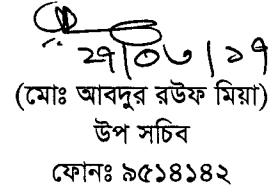 ২৭/০৬/১৭
(মোঃ আবদুর রউফ মিয়া)
উপ সচিব
ফোনঃ ৯৫১৪১৪২